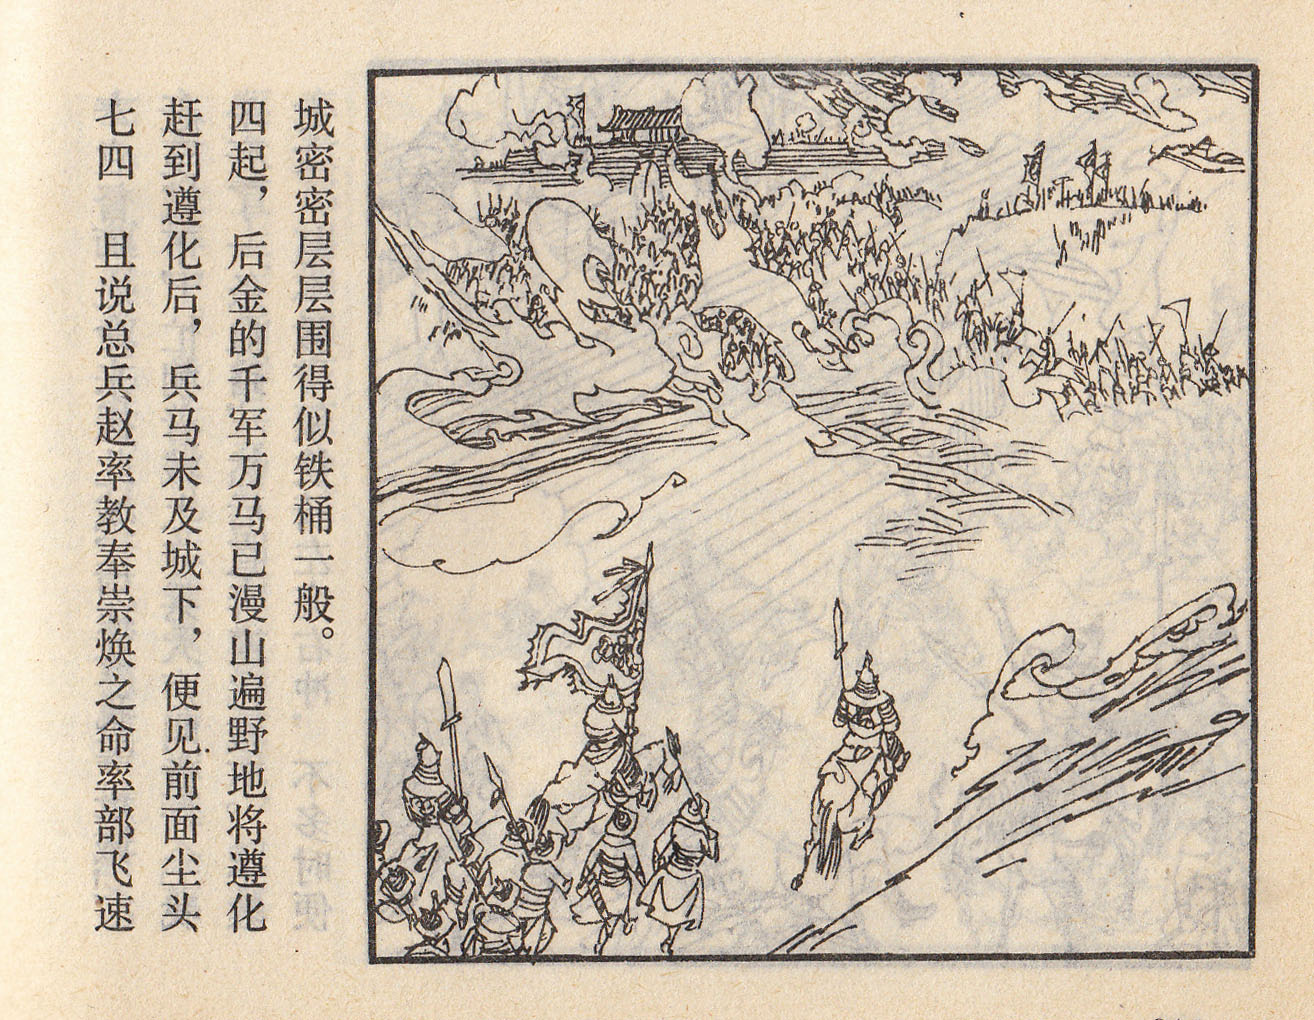 七四 且说总兵赵率教奉崇焕之命率部飞速
赶到遵化后，兵马未及城下，便见前面尘头
四起，后金的千军万马已漫山遍野地将遵化
城密密层层围得似铁桶一般。